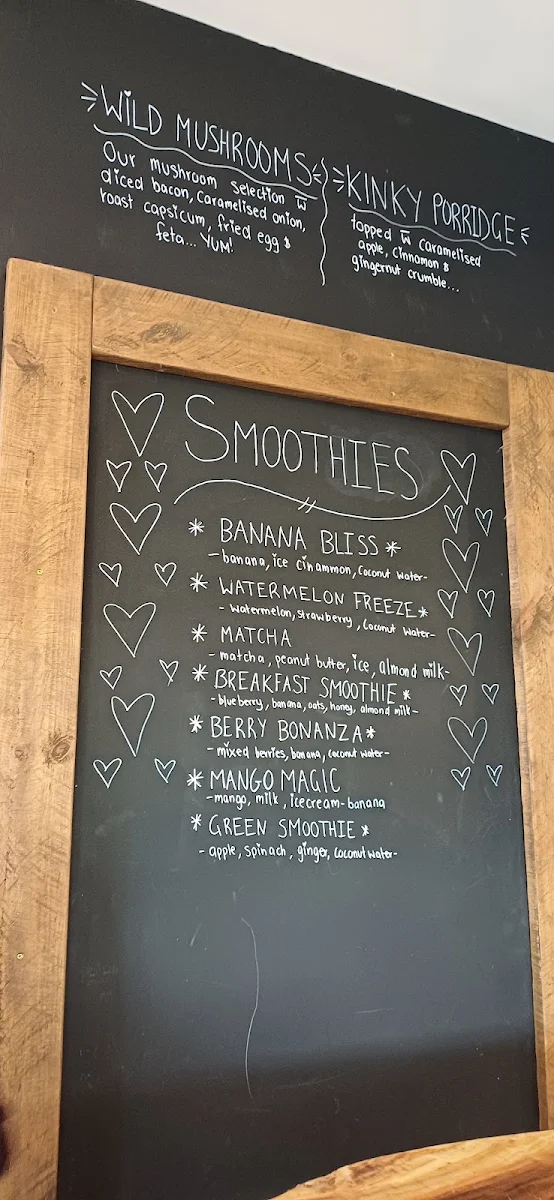 WILD MUSHROOMS
Our mushroom selection w̅
diced bacon, caramelised onion,
roast capsicum, fried egg &
feta... YUM!
KINKY PORRIDGE
topped w̅ caramelised
apple, cinnamon &
gingernut crumble...
SMOOTHIES
* BANANA BLISS *
- banana, ice cinammon, coconut water -
* WATERMELON FREEZE *
- watermelon, strawberry, coconut water -
* MATCHA
- matcha, peanut butter, ice, almond milk -
* BREAKFAST SMOOTHIE *
- blueberry, banana, oats, honey, almond milk -
* BERRY BONANZA *
- mixed berries, banana, coconut water -
* MANGO MAGIC
- mango, milk, icecream - banana
* GREEN SMOOTHIE *
- apple, spinach, ginger, coconut water -